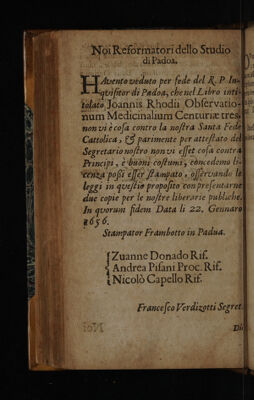 Noi Reformatori dello Studio
di Padoa.
HAvento veduto per fede del R. P. In-
quisitor di Padoa, che nel Libro inti-
tolato Joannis Rhodii Observatio-
num Medicinalium Centuriæ tres,
non vi è cosa contro la nostra Santa Fede
Cattolica, & parimente per attestato del
Segretario nostro non vi esser cosa contra
Principi, è buoni costumi, concedemo li-
cenza possi esser stampato, osservando le
leggi in questio proposito con presentarne
due copie per le nostre librarie publiche.
In quorum fidem Data li 22. Gennaro
1656.
Stampator Frambotto in Padua.
Zuanne Donado Rif.
Andrea Pisani Proc. Rif.
Nicolò Capello Rif.
Francesco Verdizotti Segret.